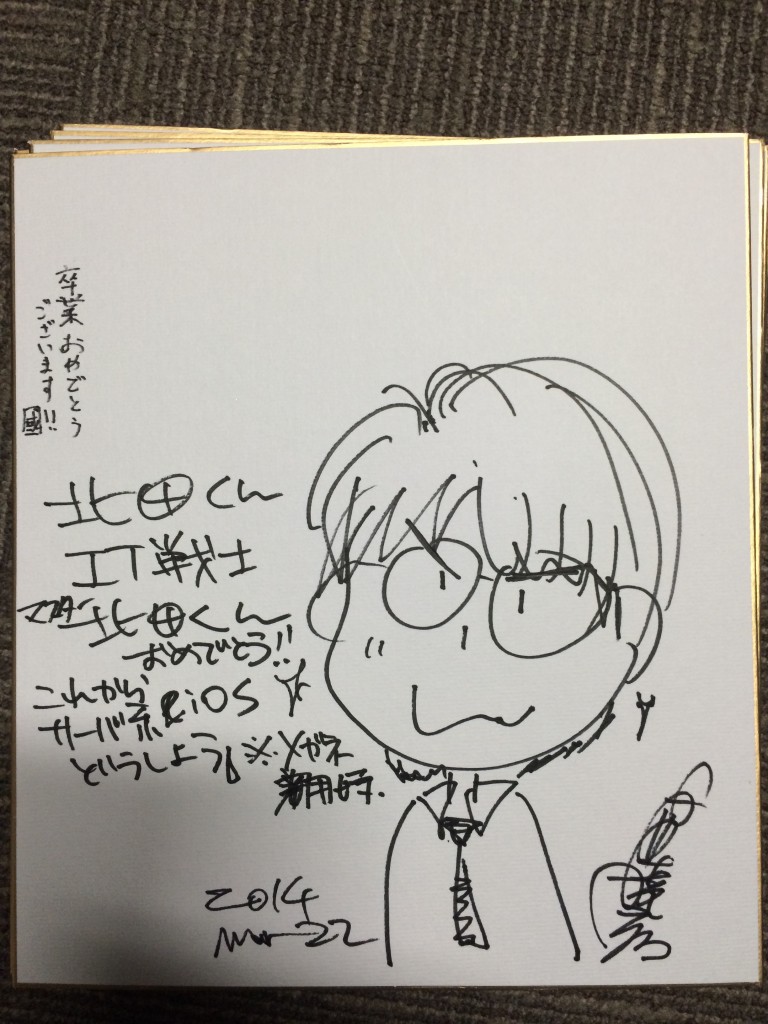 卒業おめでとう
ございます!!
北田くん
IT戦士
マスター北田くん
おめでとう!!
これから
サーバ系&iOS
どうしよう
※メガネ
2014
Mar 22